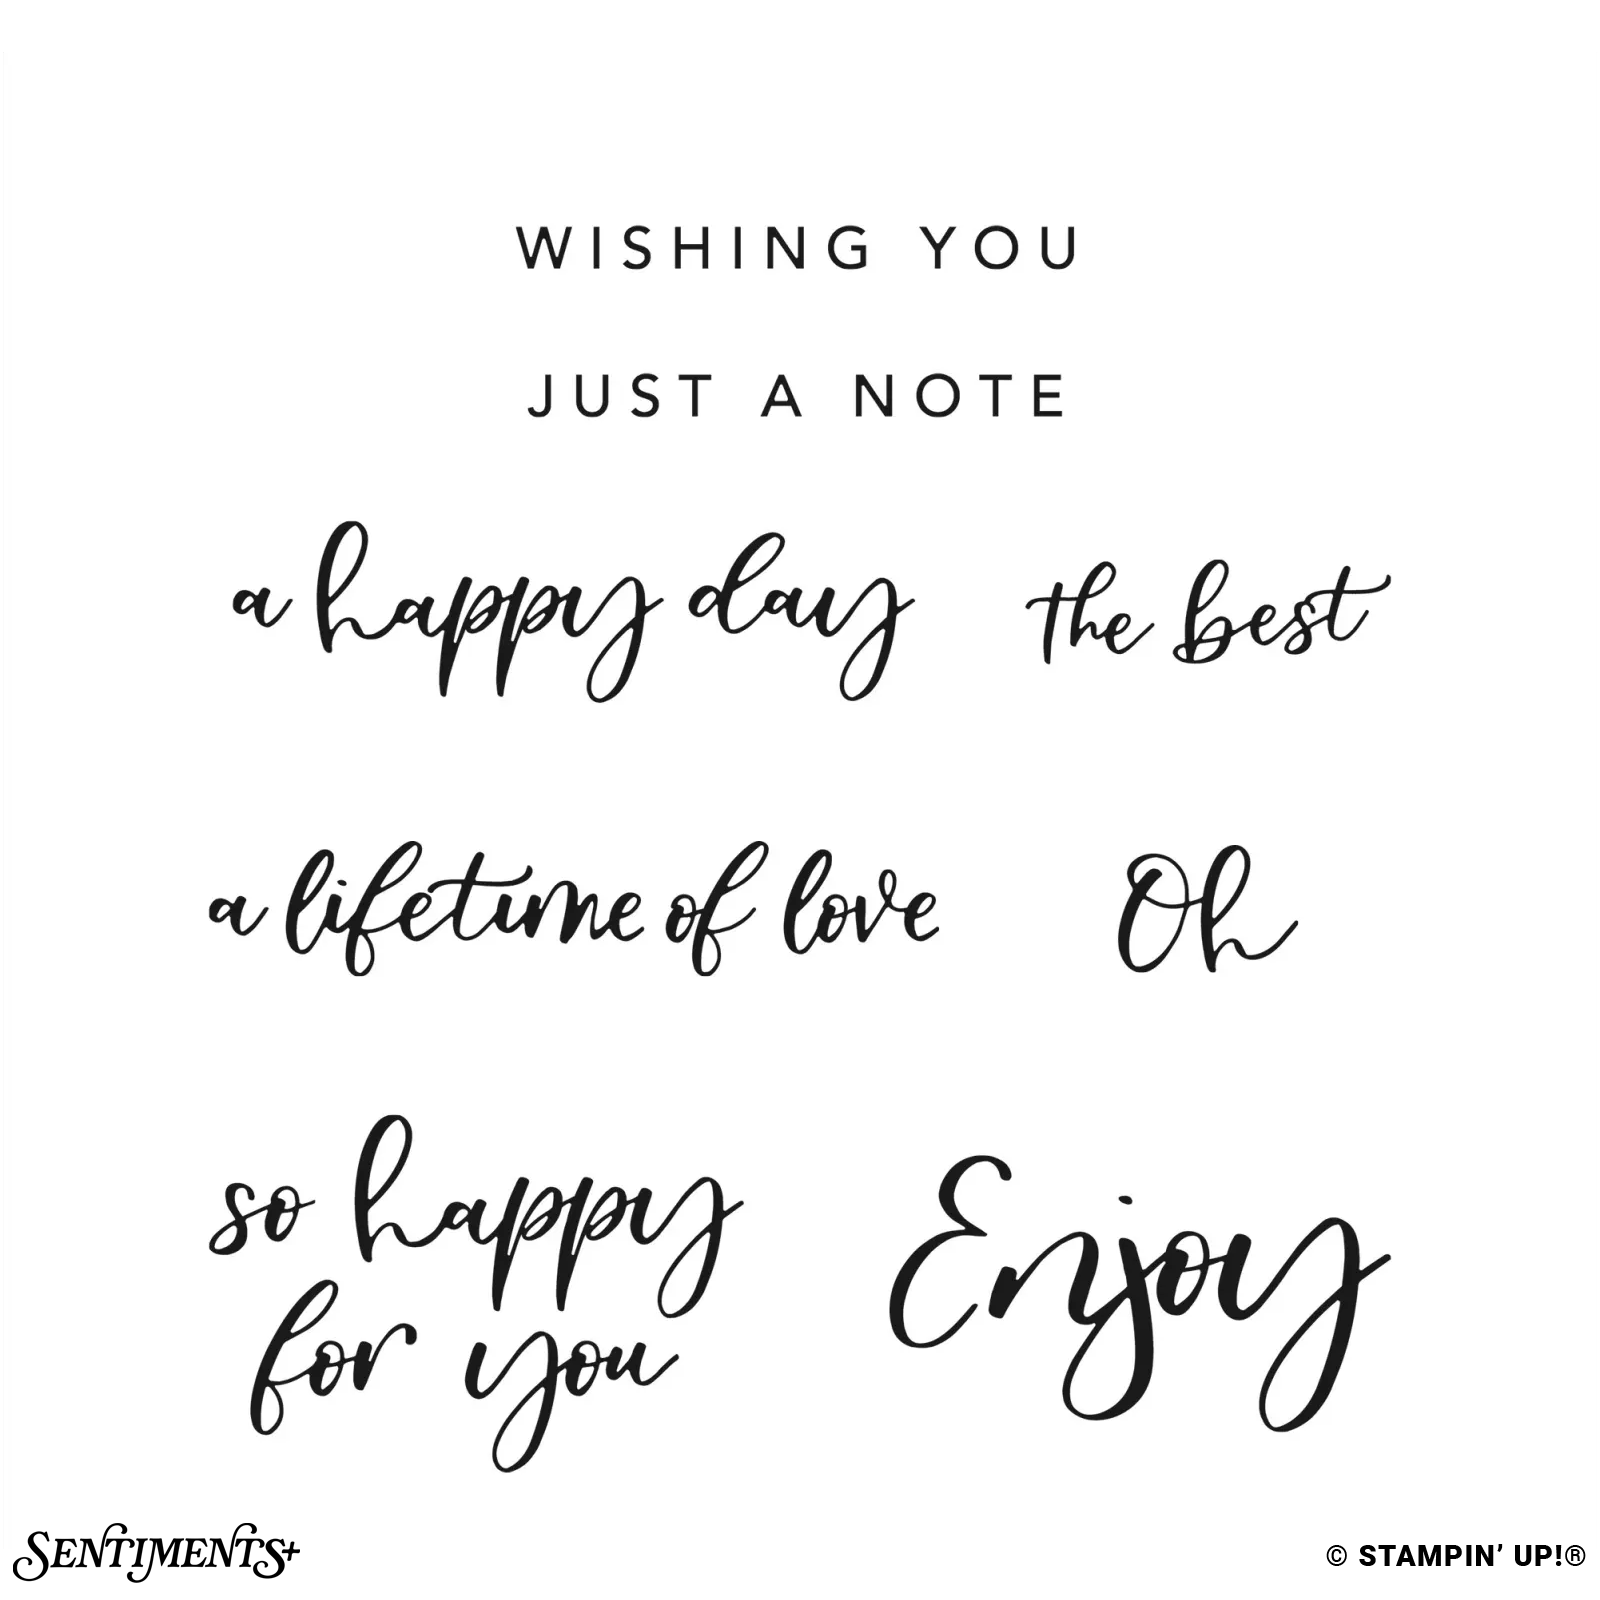 WISHING YOU
JUST A NOTE
a happy day
the best
a lifetime of love
Oh
so happy
for you
Enjoy
SENTIMENTS+
© STAMPIN’ UP!®